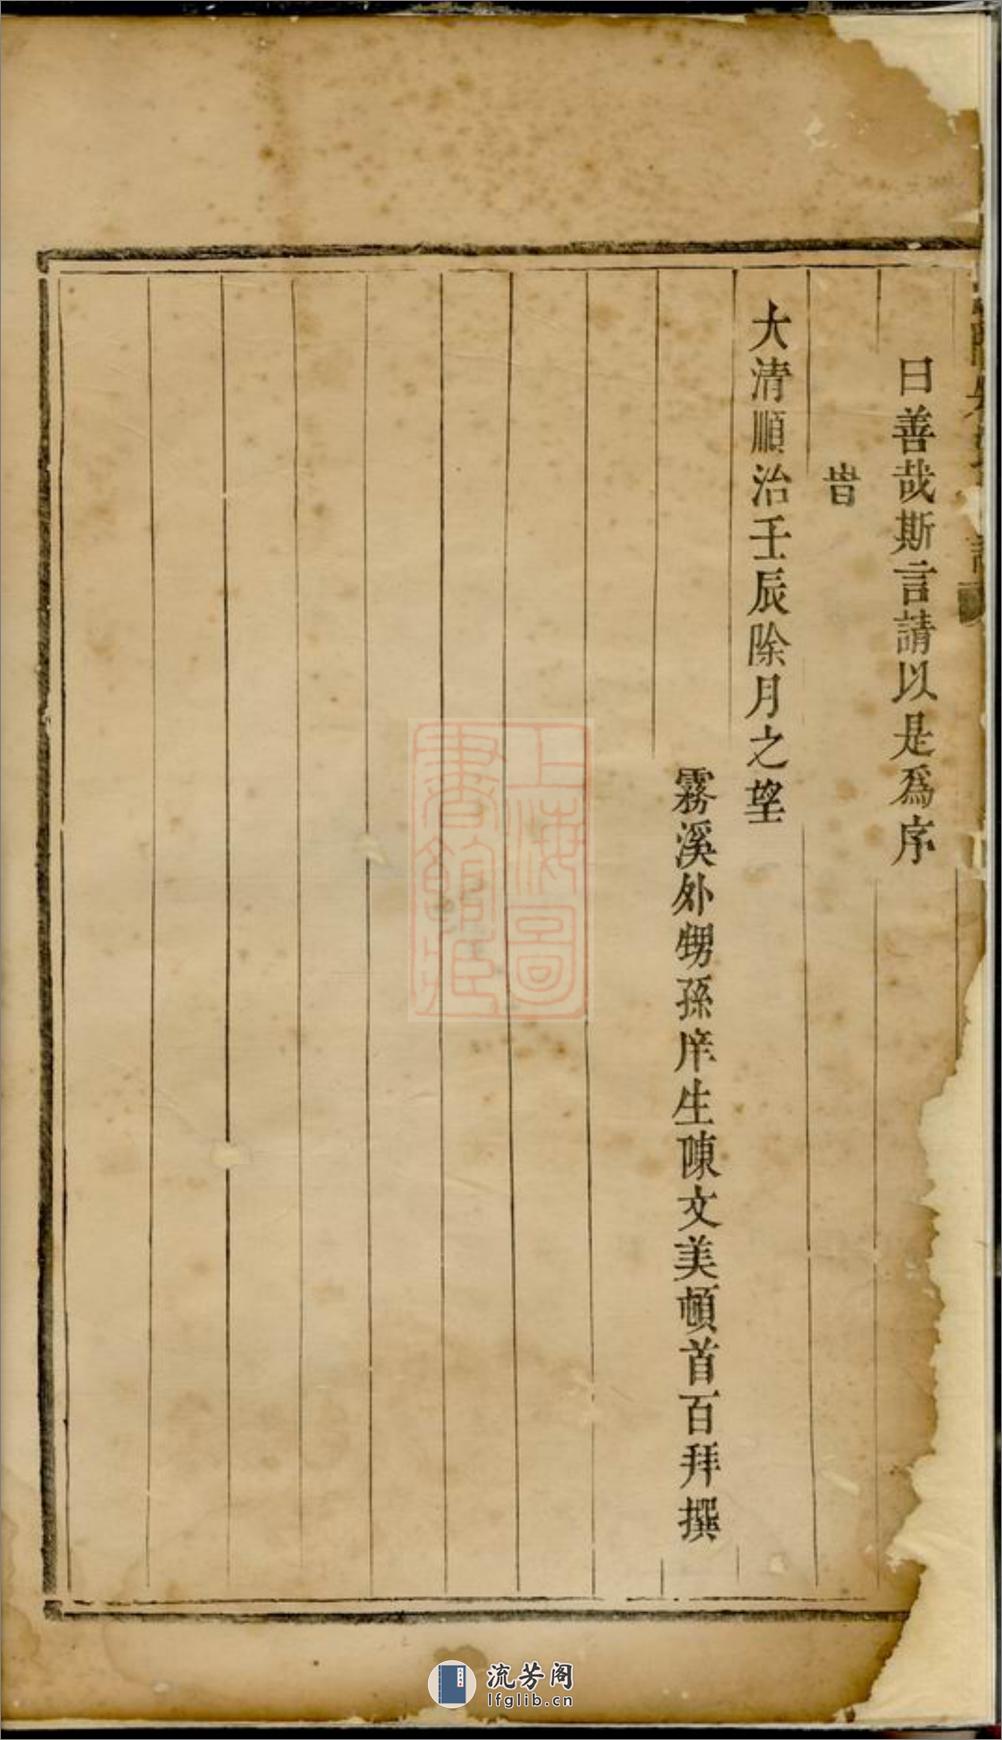 曰善哉斯言請以是爲序
旹
大清順治壬辰除月之望
霧溪外甥孫庠生陳文美頓首百拜撰
上海圖書館藏
流芳阁
lfglib.cn